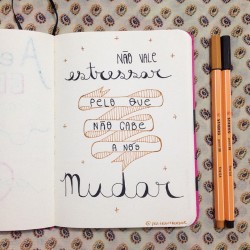 NÃO VALE
estressar
PELO QUE
NÃO CABE
A NÓS
Mudar